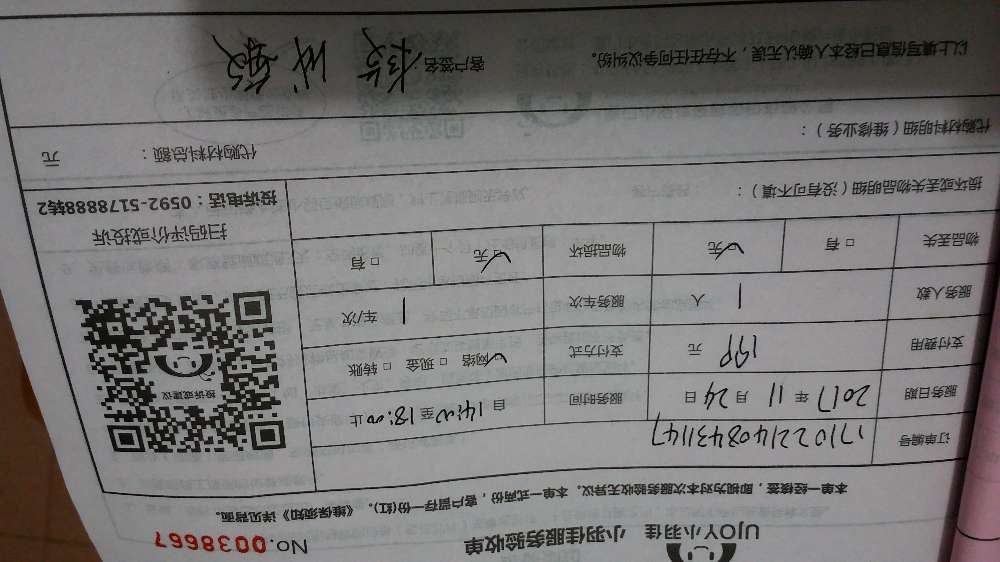 UJOY小羽佳 小羽佳服务验收单 No.0038667
本单一经接签,即视为对本次服务验收无异议。本单一式两份,客户留存一份(红)。《维保须知》详见背面。
订单编号 171022140843147
服务日期 2017年11月24日 服务时间 自14:00至18:00止
支付费用 199元 支付方式 ☑网络 □现金 □转账
服务人数 1人 服务车次 1车/次
物品丢失 □有 ☑无 物品损坏 ☑无 □有
投诉或建议
扫码评价或投诉
投诉电话:0592-5178888转2
损坏或丢失物品明细(没有可不填):
代购材料明细(维修业务): 代购材料总额: 元
以上填写信息已经本人确认无误,不存在任何争议纠纷。 客户签名: